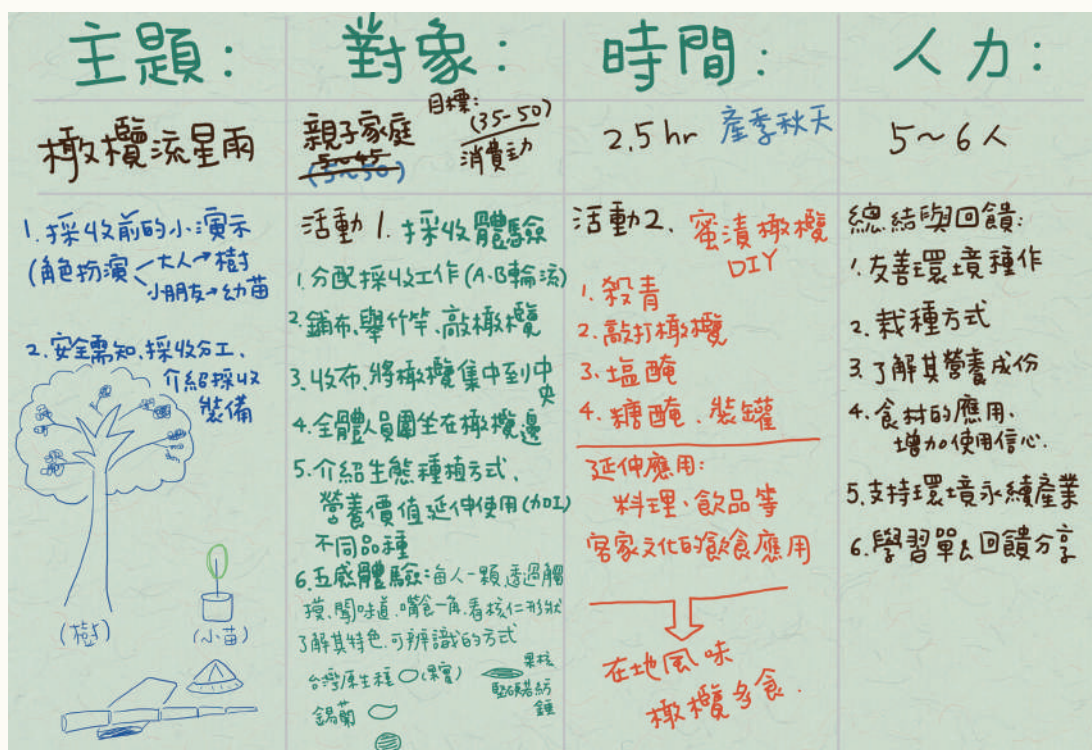 主題:
橄欖流星雨
1.採收前的小演示
(角色扮演
大人→樹
小朋友→幼苗
2.安全需知、採收分工、
介紹採收
裝備
(樹)
(小苗)
對象:
親子家庭
5~45
(5~50)
目標:
(35-50)
消費主力
活動1.採收體驗
1.分配採收工作(A.B輪流)
2.鋪布、舉竹竿、敲橄欖
3.收布、將橄欖集中到中
央
4.全體人員圍坐在橄欖邊
5.介紹生態種植方式、
營養價值延伸使用(加工)
不同品種
6.五感體驗:每人一顆透過觸
摸、聞味道、嚐食一角、看核仁形狀
了解其特色、可辨識的方式
台灣原生種
(果實)
果核
錫蘭
時間:
2.5hr 產季秋天
活動2. 蜜漬橄欖
DIY
1.殺青
2.敲打橄欖
3.塩醃
4.糖醃、裝罐
延伸應用:
料理、飲品等
客家文化的飲食應用
在地風味
橄欖多食.
人力:
5~6人
總結與回饋:
1.友善環境種作
2.栽種方式
3.了解其營養成份
4.食材的應用、
增加使用信心.
5.支持環境永續產業
6.學習單&回饋分享